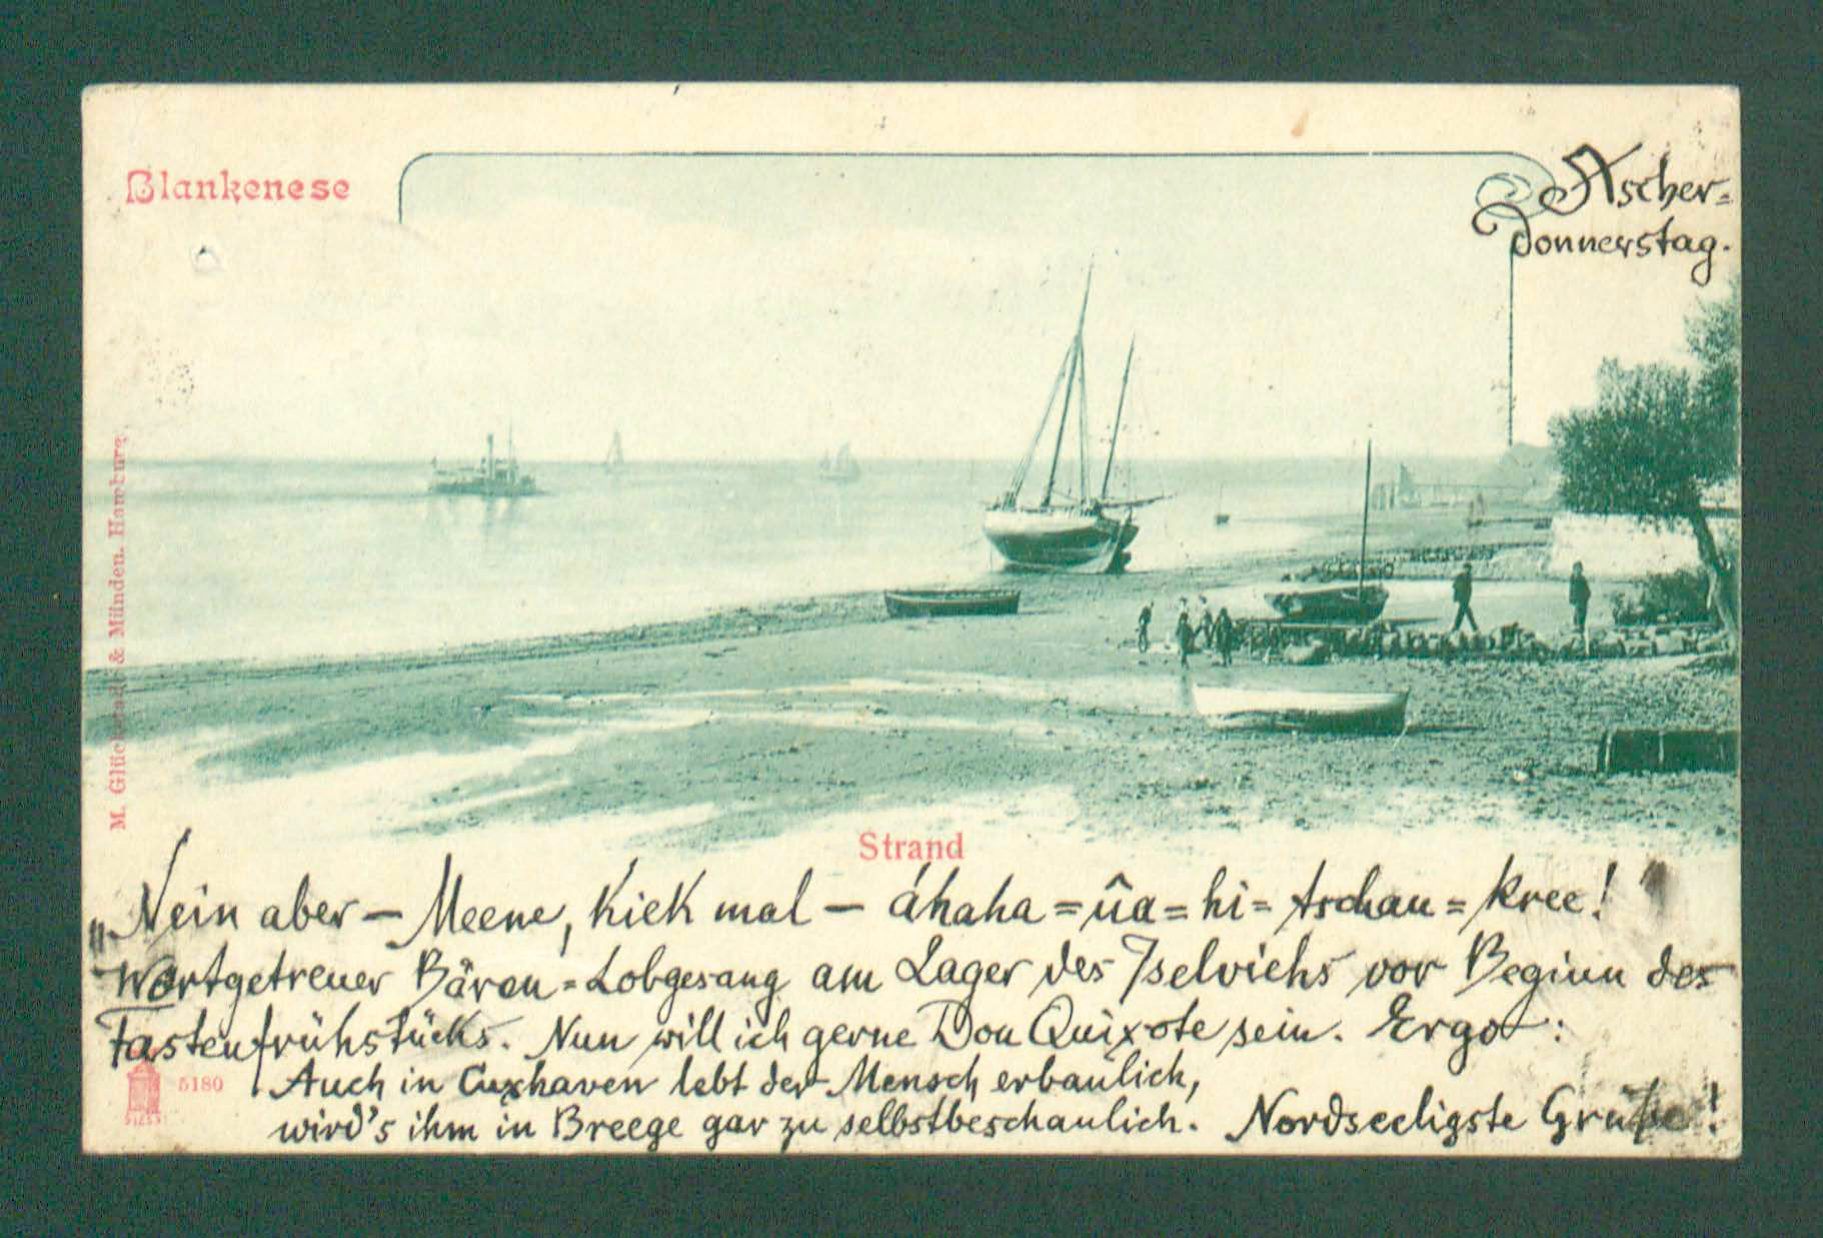 Blankenese
Ascher=
Donnerstag.
M. Glückstadt & Münden. Hamburg
Strand
„Nein aber — Meene, Kiek mal — áhaha = ûa = hi = tschau = kree!"
Wortgetreuer Bären=Lobgesang am Lager des Iselviehs vor Beginn des
Fastenfrühstücks. Nun will ich gerne Don Quixote sein. Ergo:
5180
Auch in Cuxhaven lebt der Mensch erbaulich,
wird's ihm in Breege gar zu selbstbeschaulich. Nordseeligste Grüße!